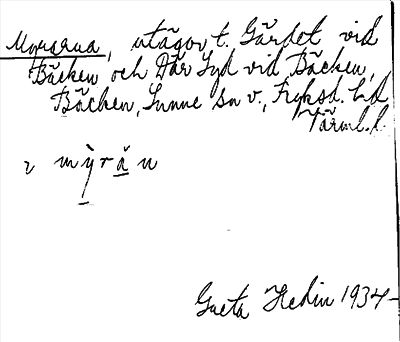 Myrarna, utägor t. Gärdet vid
Bäcken och Där Syd vid Bäcken,
Bäcken, Sunne sn v., Fryksd. hd
Värml. l.
2 mỳrǎn
Greta Hedin 1934-